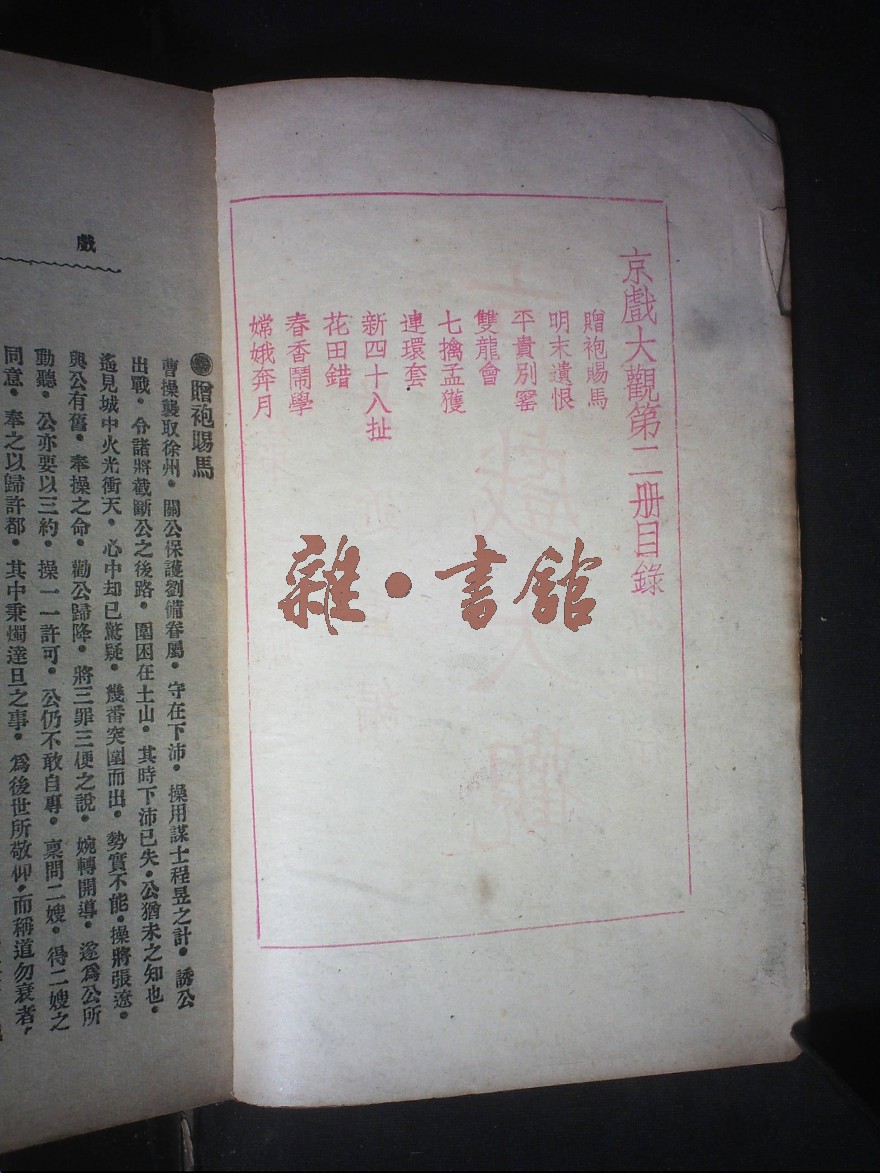 京戲大觀第二册目錄
贈袍賜馬
明末遺恨
平貴別窰
雙龍會
七擒孟獲
連環套
新四十八扯
花田錯
春香鬧學
嫦娥奔月
雜•書館
戲
贈袍賜馬
曹操襲取徐州。關公保護劉備眷屬。守在下沛。操用謀士程昱之計。誘公
出戰。令諸將截斷公之後路。圍困在土山。其時下沛已失。公猶未之知也。
遙見城中火光衝天。心中却已驚疑。幾番突圍而出。勢實不能。操將張遼。
與公有舊。奉操之命。勸公歸降。將三罪三便之說。婉轉開導。遂爲公所
動聽。公亦要以三約。操一一許可。公仍不敢自專。稟問二嫂。得二嫂之
同意。奉之以歸許都。其中秉燭達旦之事。爲後世所敬仰。而稱道勿衰者。